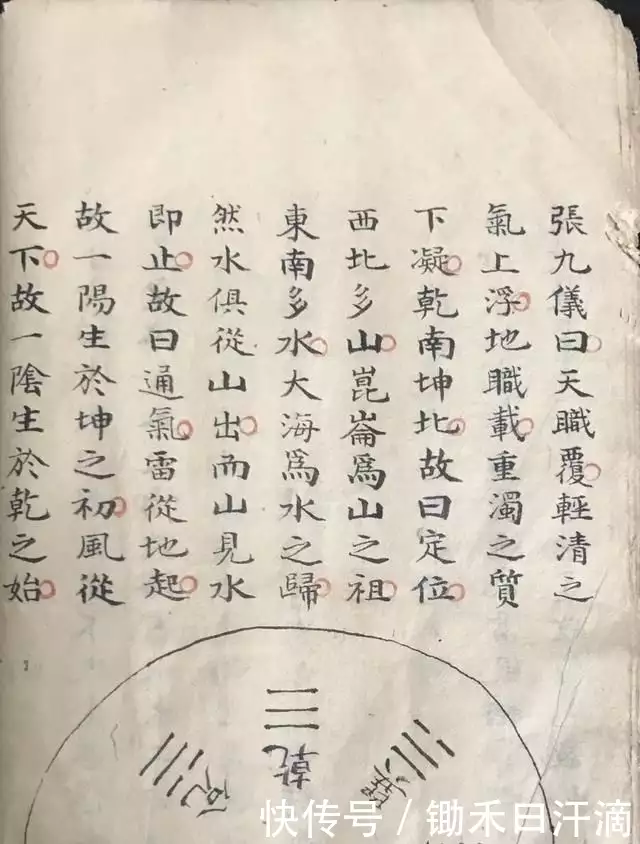 張九儀曰天職覆輕清之
氣上浮地職載重濁之質
下凝乾南坤北故曰定位
西北多山崑崙為山之祖
東南多水大海為水之歸
然水俱從山出而山見水
即止故曰通氣雷從地起
故一陽生於坤之初風從
天下故一陰生於乾之始
乾
兌
快传号／锄禾日汗滴